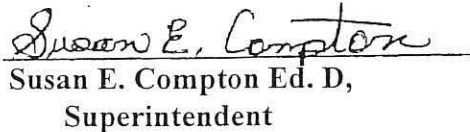 Susan E. Compton
Susan E. Compton Ed. D,
Superintendent